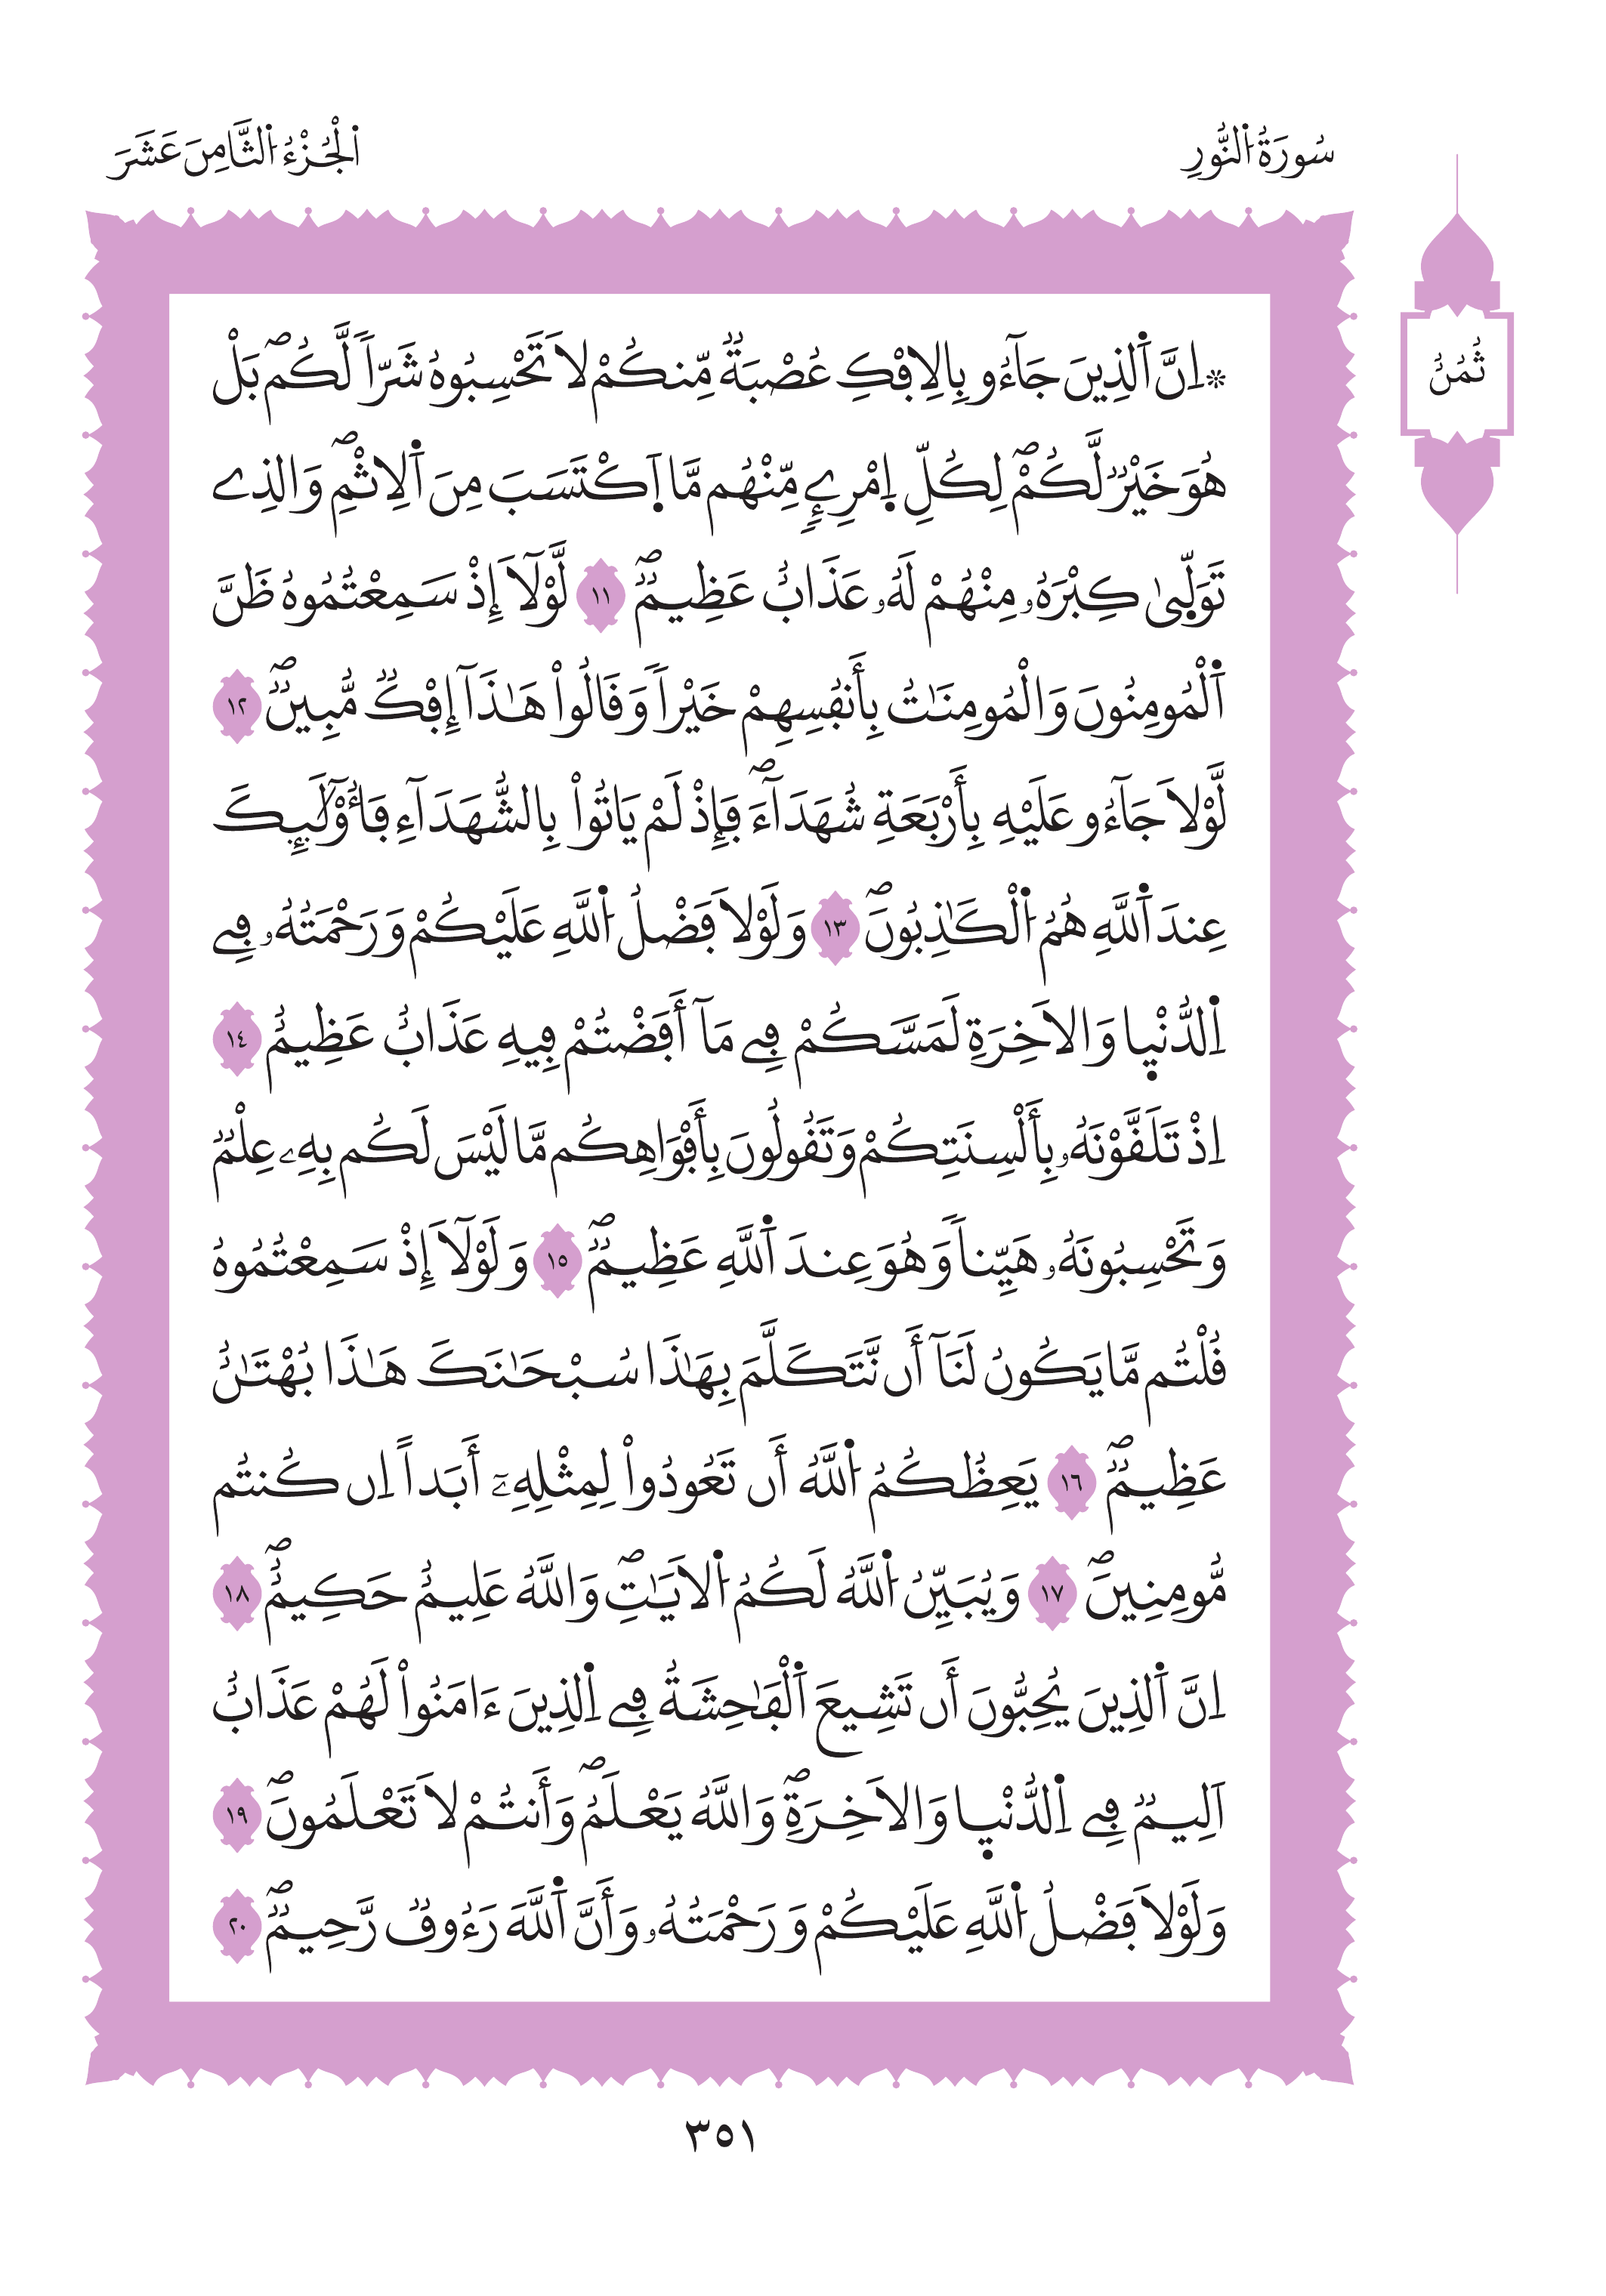 سُورَةُ اُ۬لنُّورِ
اَ۬لْجُزْءُ اُ۬لثَّامِنَ عَشَرَ
ثُمُنُۢ
۞اِنَّ اَ۬لذِينَ جَآءُو بِالِافْكِ عُصْبَةٞ مِّنكُمْ لَا تَحْسِبُوهُ شَرّاٗ لَّكُمۖ بَلْ
هُوَ خَيْرٞ لَّكُمْۖ لِكُلِّ اِ۪مْرِےٕٖ مِّنْهُم مَّا اَ۪كْتَسَبَ مِنَ اَ۬لِاثْمِۖ وَالذِے
تَوَلّ۪ىٰ كِبْرَهُۥ مِنْهُمْ لَهُۥ عَذَابٌ عَظِيمٞۖ ١١ لَّوْلَآ إِذْ سَمِعْتُمُوهُ ظَنَّ
اَ۬لْمُومِنُونَ وَالْمُومِنَٰتُ بِأَنفُسِهِمْ خَيْراٗ وَقَالُواْ هَٰذَآ إِفْكٞ مُّبِينٞۖ ١٢
لَّوْلَا جَآءُو عَلَيْهِ بِأَرْبَعَةِ شُهَدَآءَۖ فَإِذْ لَمْ يَاتُواْ بِالشُّهَدَآءِ فَأُوْلَٰٓئِكَ
عِندَ اَ۬للَّهِ هُمُ اُ۬لْكَٰذِبُونَۖ ١٣ وَلَوْلَا فَضْلُ اُ۬للَّهِ عَلَيْكُمْ وَرَحْمَتُهُۥ فِے
اِ۬لدُّنْي۪ا وَالَاخِرَةِ لَمَسَّكُمْ فِے مَآ أَفَضْتُمْ فِيهِ عَذَابٌ عَظِيمٌ ١٤
اِذْ تَلَقَّوْنَهُۥ بِأَلْسِنَتِكُمْ وَتَقُولُونَ بِأَفْوَاهِكُم مَّا لَيْسَ لَكُم بِهِۦ عِلْمٞ
وَتَحْسِبُونَهُۥ هَيِّناٗ وَهُوَ عِندَ اَ۬للَّهِ عَظِيمٞۖ ١٥ وَلَوْلَآ إِذْ سَمِعْتُمُوهُ
قُلْتُم مَّا يَكُونُ لَنَآ أَن نَّتَكَلَّمَ بِهَٰذَا سُبْحَٰنَكَ هَٰذَا بُهْتَٰنٌ
عَظِيمٞۖ ١٦ يَعِظُكُمُ اُ۬للَّهُ أَن تَعُودُواْ لِمِثْلِهِۦٓ أَبَداً اِن كُنتُم
مُّومِنِينَۖ ١٧ وَيُبَيِّنُ اُ۬للَّهُ لَكُمُ اُ۬لَايَٰتِۖ وَاللَّهُ عَلِيمٌ حَكِيمٌۖ ١٨
اِنَّ اَ۬لذِينَ يُحِبُّونَ أَن تَشِيعَ اَ۬لْفَٰحِشَةُ فِے اِ۬لذِينَ ءَامَنُواْ لَهُمْ عَذَابٌ
اَلِيمٞ فِے اِ۬لدُّنْي۪ا وَالَاخِرَةِۖ وَاللَّهُ يَعْلَمُۖ وَأَنتُمْ لَا تَعْلَمُونَۖ ١٩
وَلَوْلَا فَضْلُ اُ۬للَّهِ عَلَيْكُمْ وَرَحْمَتُهُۥ وَأَنَّ اَ۬للَّهَ رَءُوفٞ رَّحِيمٞۖ ٢٠
٣٥١